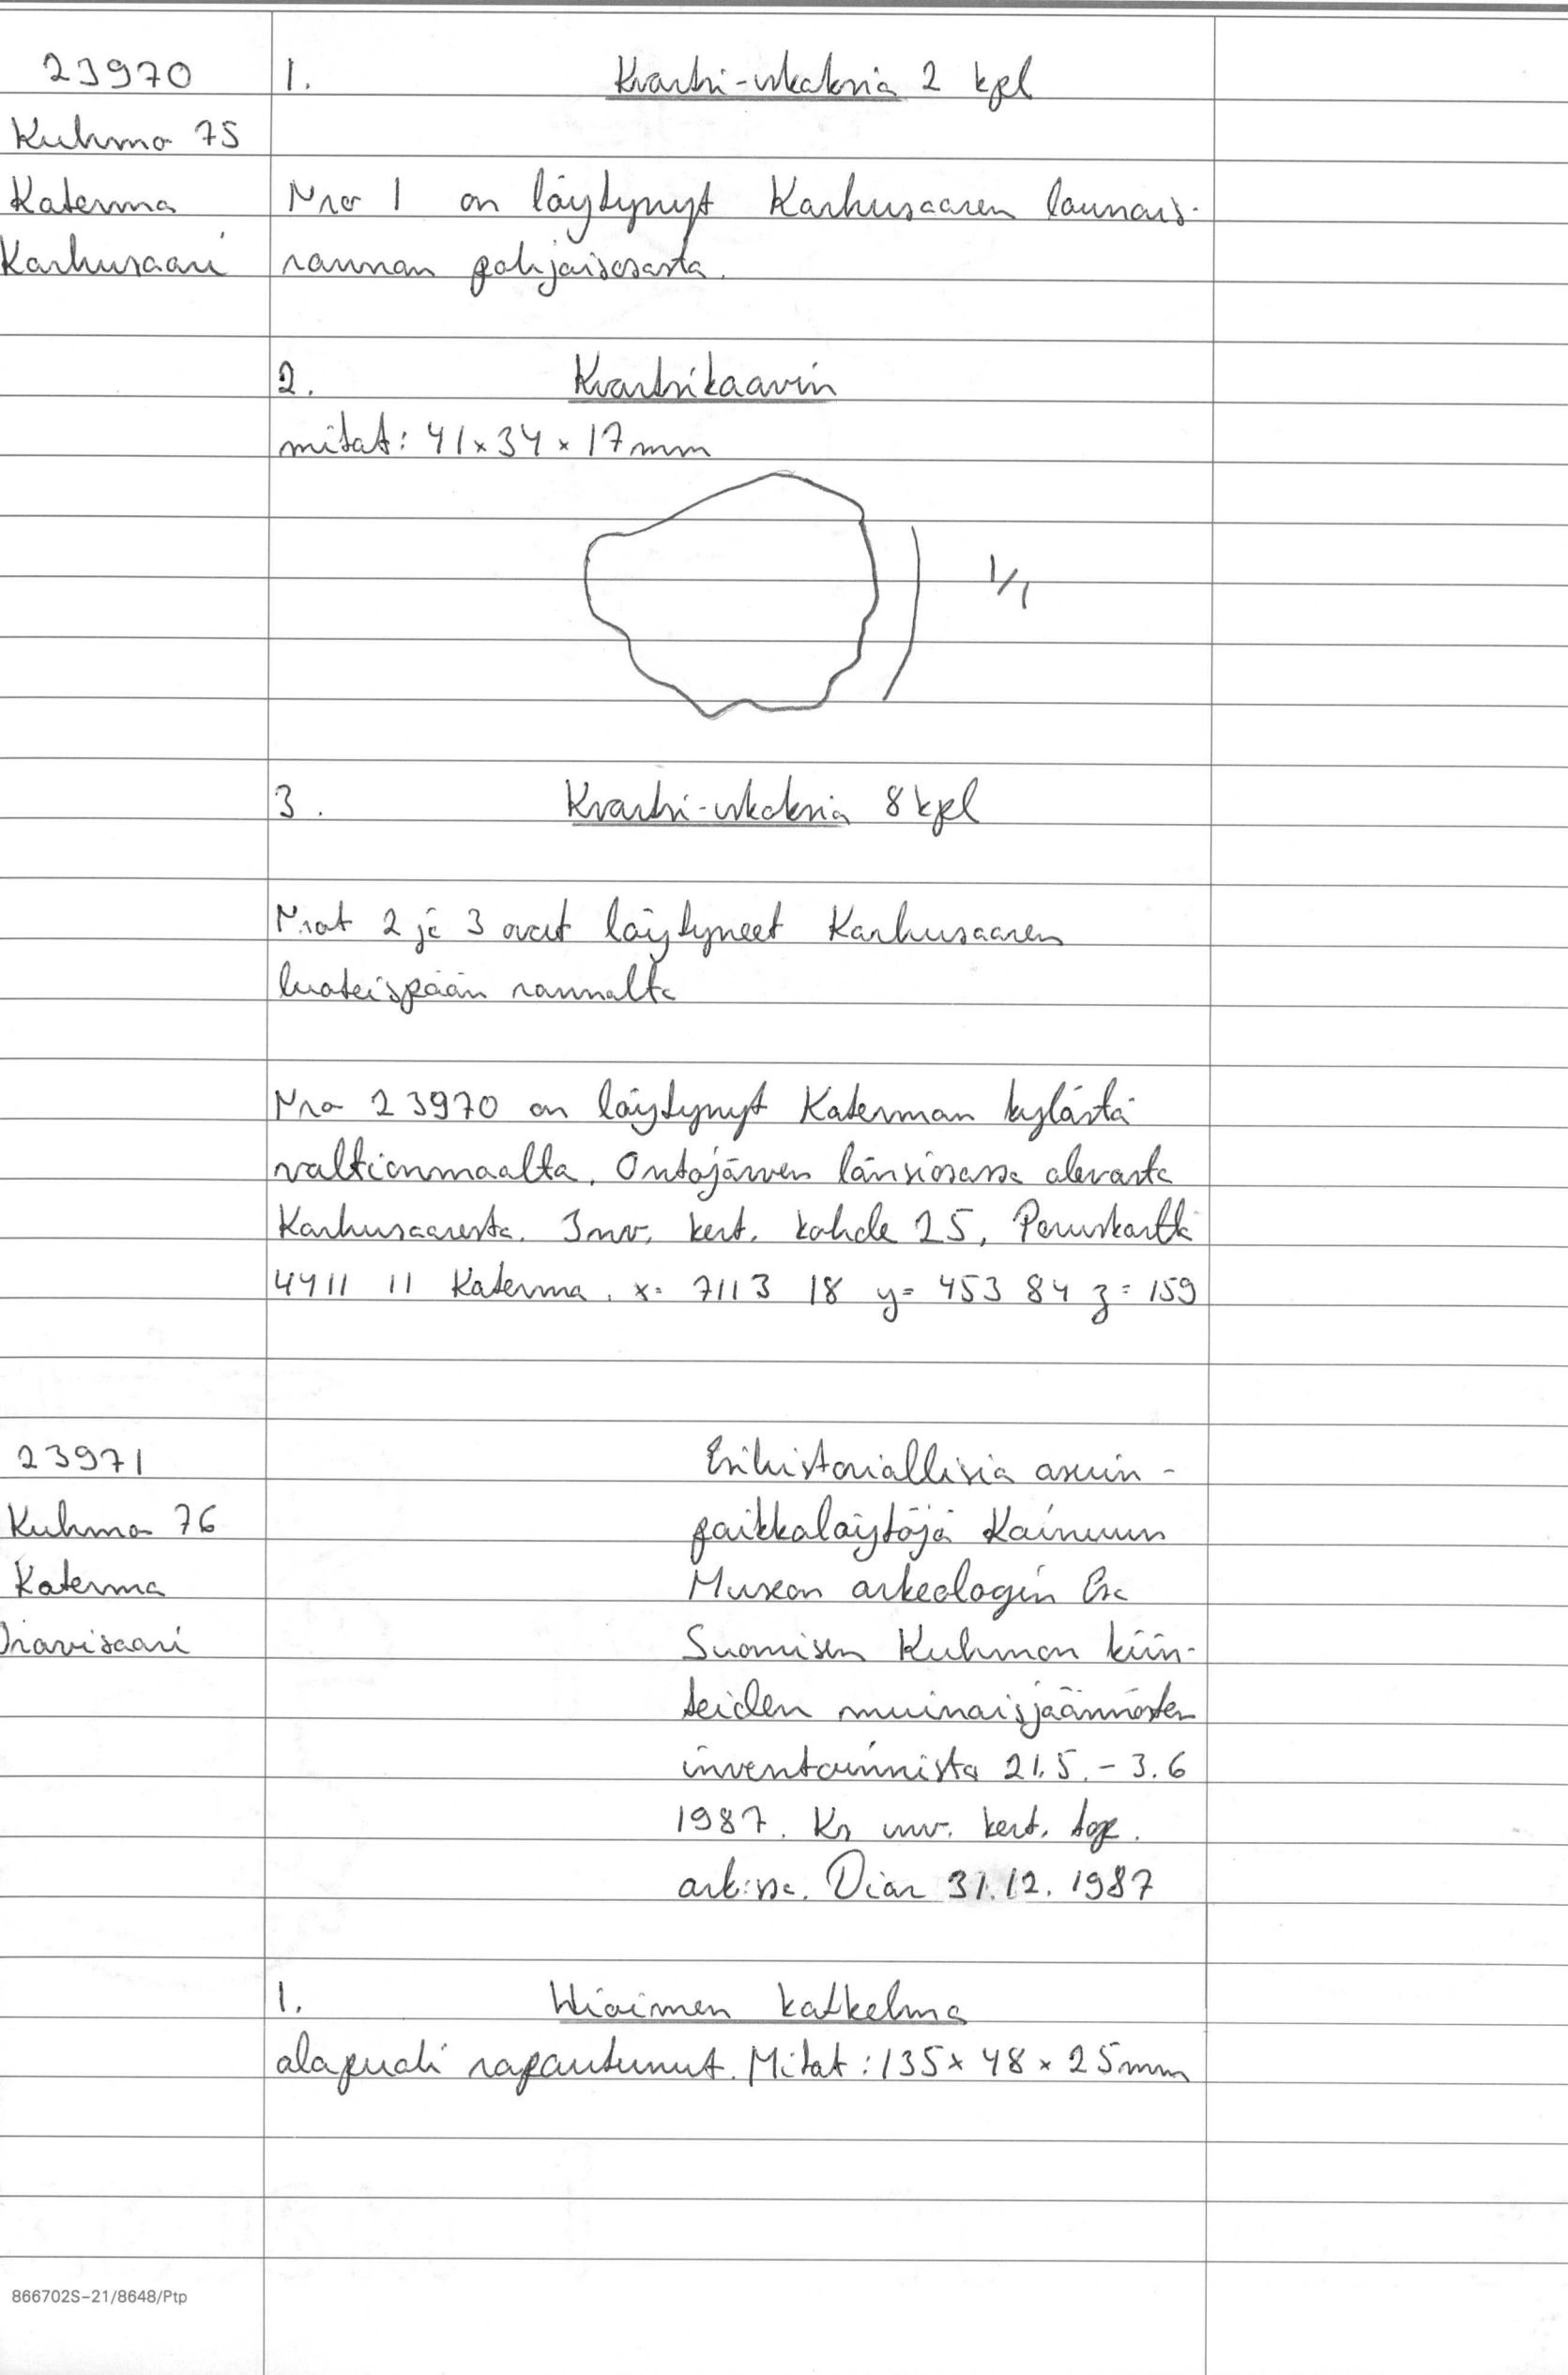 23970 1. Kvartsi-iskoksia 2 kpl
Kuhmo 75
Katerma Nro 1 on löytynyt Karhusaaren lounais-
Karhusaari rannan pohjaisosasta.
2. Kvartsikaavin
mitat: 41x34x17mm
1/1
3. Kvartsi-iskoksia 8kpl
Nrot 2 ja 3 ovat löytyneet Karhusaaren
luoteispään rannalta
Nro 23970 on löytynyt Katerman kylästä
valtionmaalta, Ontojärven länsiosassa olevasta
Karhusaaresta. Inv. kert. kohde 25, Peruskartta
4411 11 Katerma. x= 7113 18 y= 453 84 z= 159
23971 Esihistoriallisia asuin-
Kuhmo 76 paikkalöytöjä Kainuun
Katerma Museon arkeologin Esa
Oravisaari Suomisen Kuhmon kiin-
teiden muinaisjäännösten
inventoinnista 21.5.-3.6
1987. Ks inv. kert. top.
ark:ssa. Diar 31.12.1987
1. Hioimen katkelma
alapuoli rapautunut. Mitat: 135x48x25mm
866702S-21/8648/Ptp